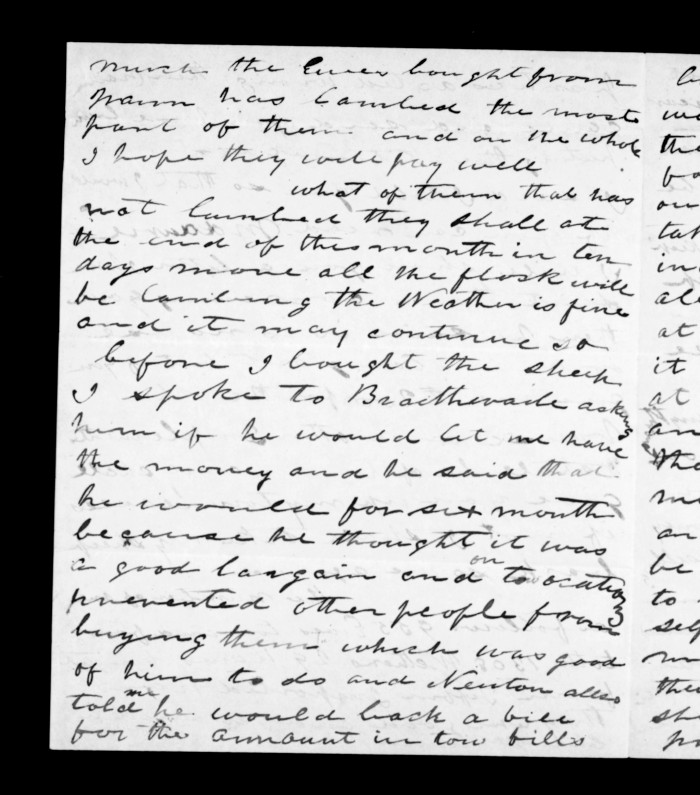 much the Ewes bought from
has lambed the most
part of them and on the whole
I hope they will pay well
what of them that has
not lambed they shall at
the end of this month in ten
days more all the flock will
be lambing the Weather is fine
and it may continue so
before I bought the sheep
I spoke to asking
him if he would let me have
the money and he said that
he would for six month
because he thought it was
a good bargain and on tow
prevented other people from
buying them which was good
of him to do and Newton also
told me he would back a bill
for the ammount in tow bills